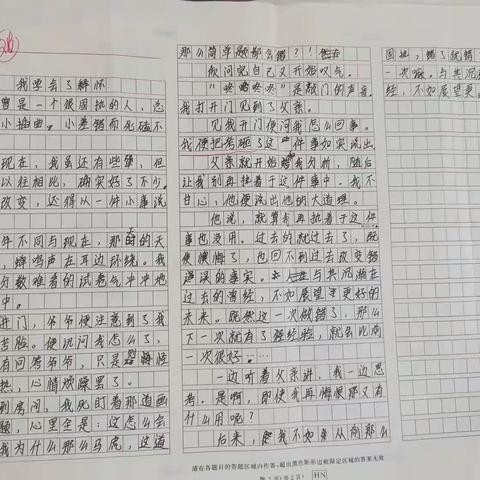 我学会了释怀
曾是一个很固执的人,总
小插曲。小差错而死磕不
现在,我虽还有些犟,但
以往相比,确实好了不少。
改变,还得从一件小事说
年不同与现在,那时的天
,蝉鸣声在耳边环绕。我
分数难看的试卷气冲冲地
中。
开门,爷爷便注意到了我
苦脸。便讯问我怎么了,
有回答爷爷,只是
热,心情烦躁罢了。
到房间,我死盯着那道画
题,心里全是:这怎么会
我为什么那么马虎,这道
那么简单题都会错?!
质问完自己又开始叹气。
“咚咚咚咚”是敲门的声音。
我打开门见到了父亲。
见我开门便问我怎么回事。
我便把考砸了这件事如实说出。
父亲就开始给我分析,随后
让我别再执着于这件事中。我不
甘心,他便说出他的大道理。
他说,就算我再执着于这件
事也没用。过去的就过去了,既
便懊悔了,也回不到过去改变错
误的事实。与其沉溺在
过去的曾经,不如展望更好的
未来。既然这一次做错了,那么
下一次就有了经验,就会比前
一次很好。…
一边听着父亲讲,我一边思
考。是啊,即使我再悔恨那又有
什么用呢?
后来,我不如从前那么
固执,错了就错
一次嘛。与其沉
经,不如展望更
请在各题目的答题区域内作答,超出黑色矩形边框限定区域的答案无效
第2页(共2页) HN